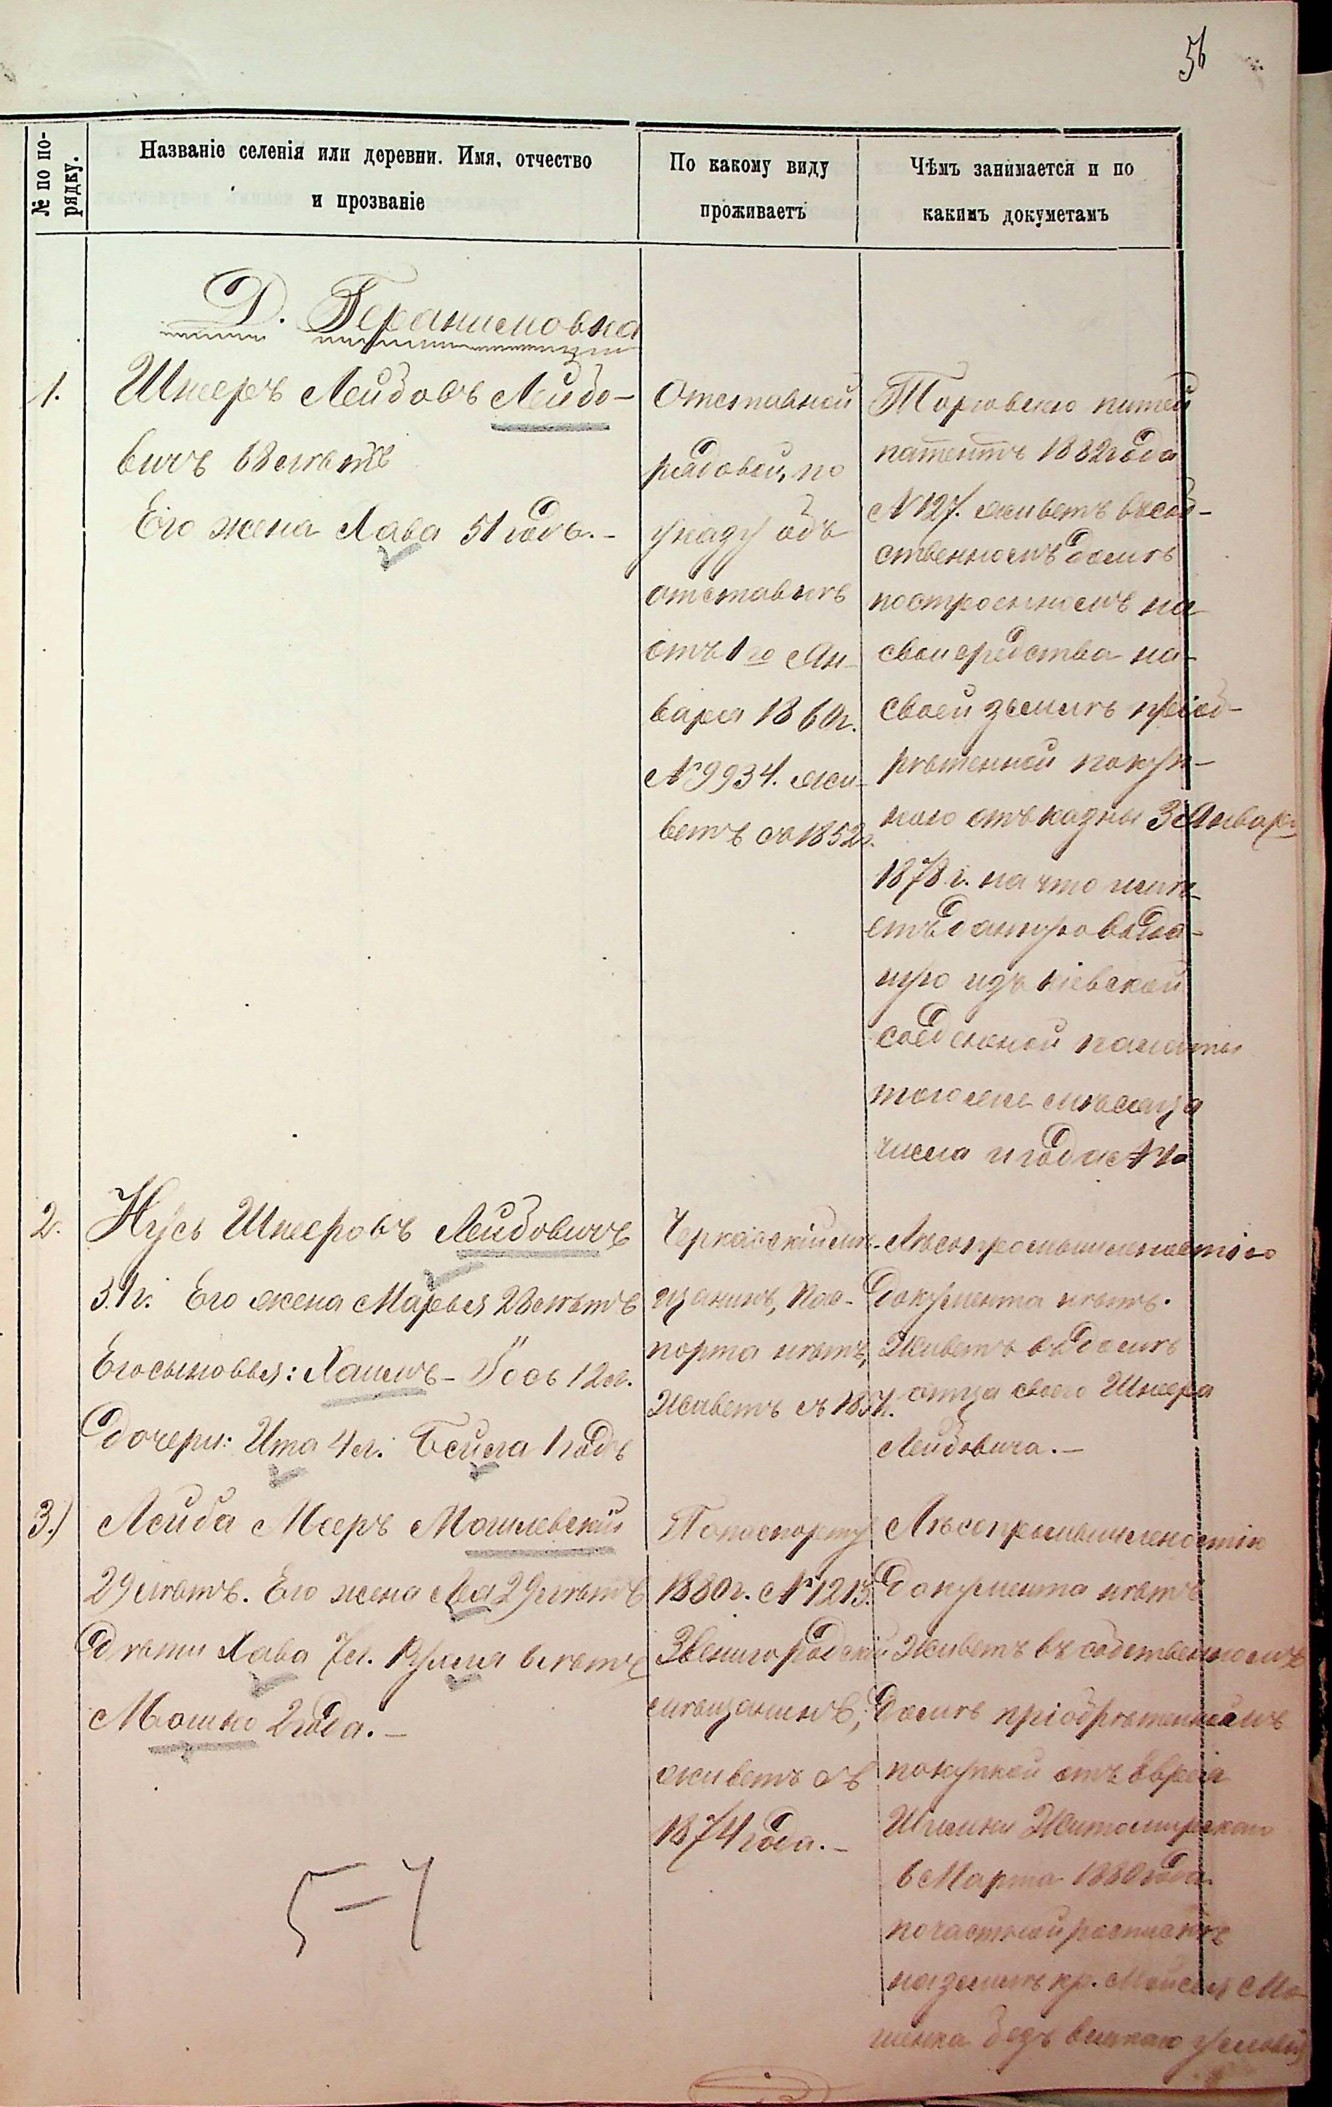 56
№ по по-
рядку.
Названіе селенія или деревни. Имя, отчество
и прозваніе
По какому виду
проживаетъ
Чѣмъ занимается и по
какимъ докуметамъ
Д. Геранимовка
1.
Шмеръ Лейбовъ Лейбо-
вичъ 68 лѣтъ
Его жена Хава 51 годъ. -
Отставной
рядовой, по
указу объ
отставкѣ
отъ 1го Ян-
варя 1860г.
№ 9934. жи-
ветъ съ 1852г.
Торговлею питей
патентъ 1882 года
№ 127. живетъ въ соб-
ственномъ домѣ
построенномъ на
свои средства на
своей землѣ пріоб-
рѣтенной покуп-
кою отъ казны 3 Января
1878 г. на что имѣ-
етъ данную выдан-
ную изъ Кіевской
соединеной палаты
того же мѣсяца
числа и года №
2.
Нусь Шмеровъ Лейбовичъ
31 г. Его жена Марья 28 лѣтъ
Его сыновья: Хаимъ - Іось 12 л.
дочери: Ита 4 л. Бейла 1 годъ
Черкасскій мѣ-
щанинъ, пас-
порта нѣтъ,
Живетъ съ
Лѣсопромышленостію
документа нѣтъ.
Живетъ въ домѣ
отца своего Шмера
Лейбовича. -
3.)
Лейба Мееръ Могилевскій
29 лѣтъ. Его жена Леа 29 лѣтъ
Дѣти Хава 7 л. 6 лѣтъ
Мошко 2 года. -
По паспорту
1880 г. № 1213.
Звенигородскій
мѣщанинъ,
живетъ съ
1874 года. -
Лѣсопромышленостію
документа нѣтъ
Живетъ въ собственномъ
домѣ пріобрѣтенномъ
покупкой отъ Еврея
Шлемы Житомирскаго
6 Марта 1880 года
по частной роспискѣ
на землѣ кр. Мойсея Мо-
безъ всякаго условія
5 - 7